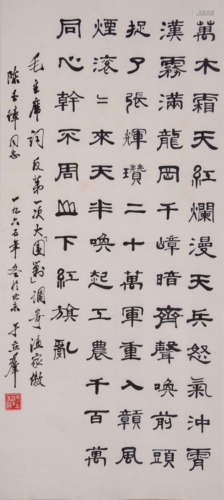 萬木霜天紅爛漫天兵怒氣沖霄
漢霧滿龍岡千嶂暗齊聲喚前頭
捉了張輝瓚二十萬軍重入贛風
煙滾〻來天半喚起工農千百萬
同心幹不周山下紅旗亂
毛主席詞反第一次大圍剿調寄漁家傲
同志 一九六五年 於北京 于立羣